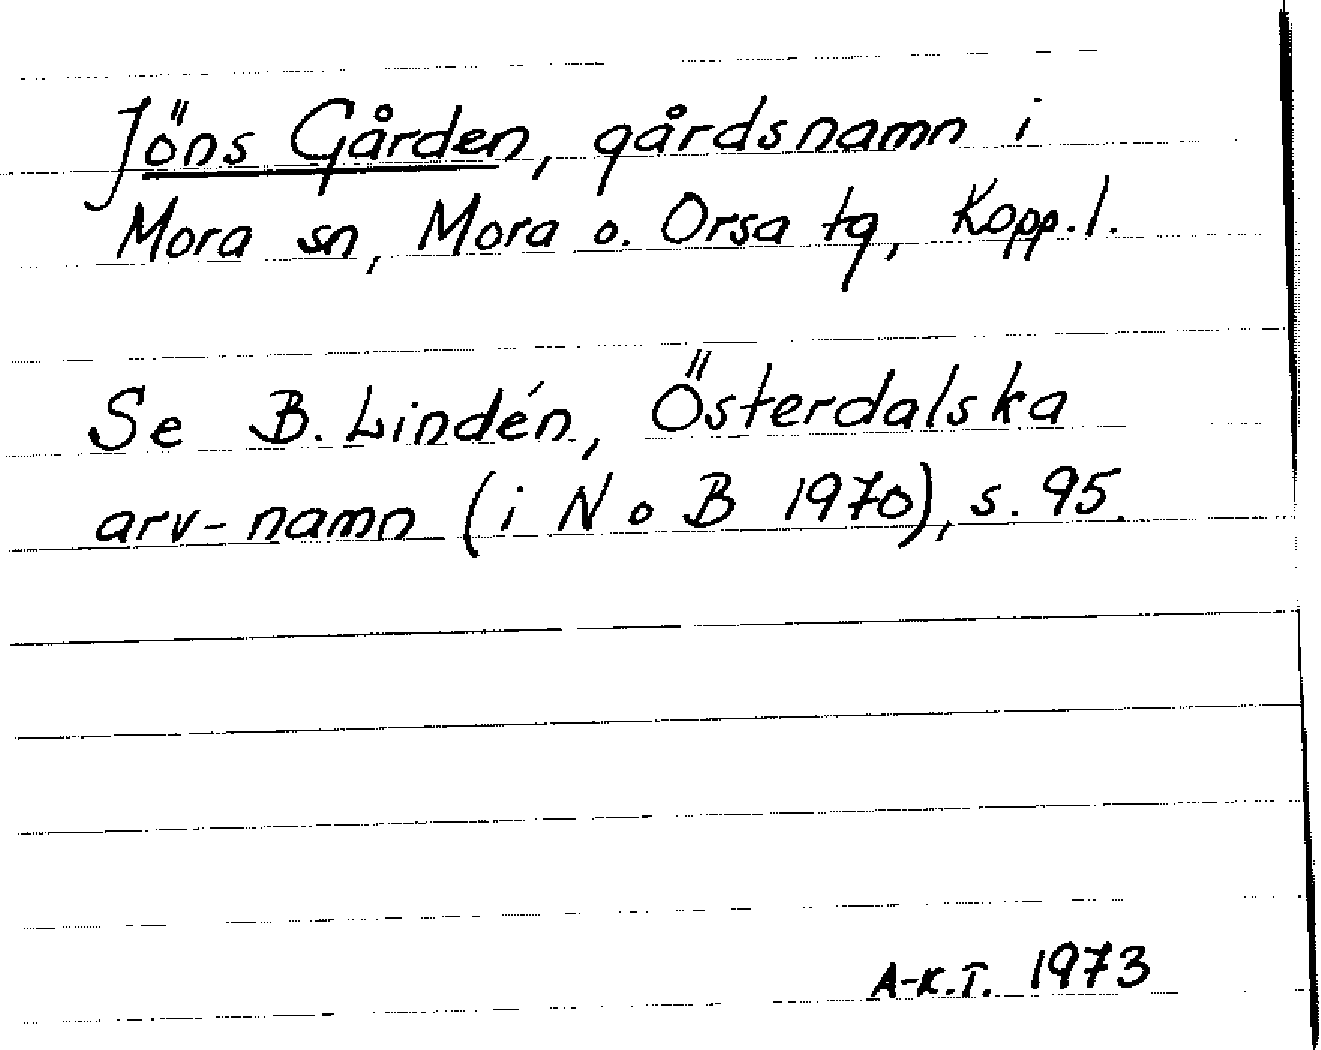 Jöns Gården, gårdsnamn i
Mora sn, Mora o. Orsa tg, Kopp. l.
Se B. Lindén, Österdalska
arv-namn (i NoB 1970), s. 95.
A-K.T. 1973